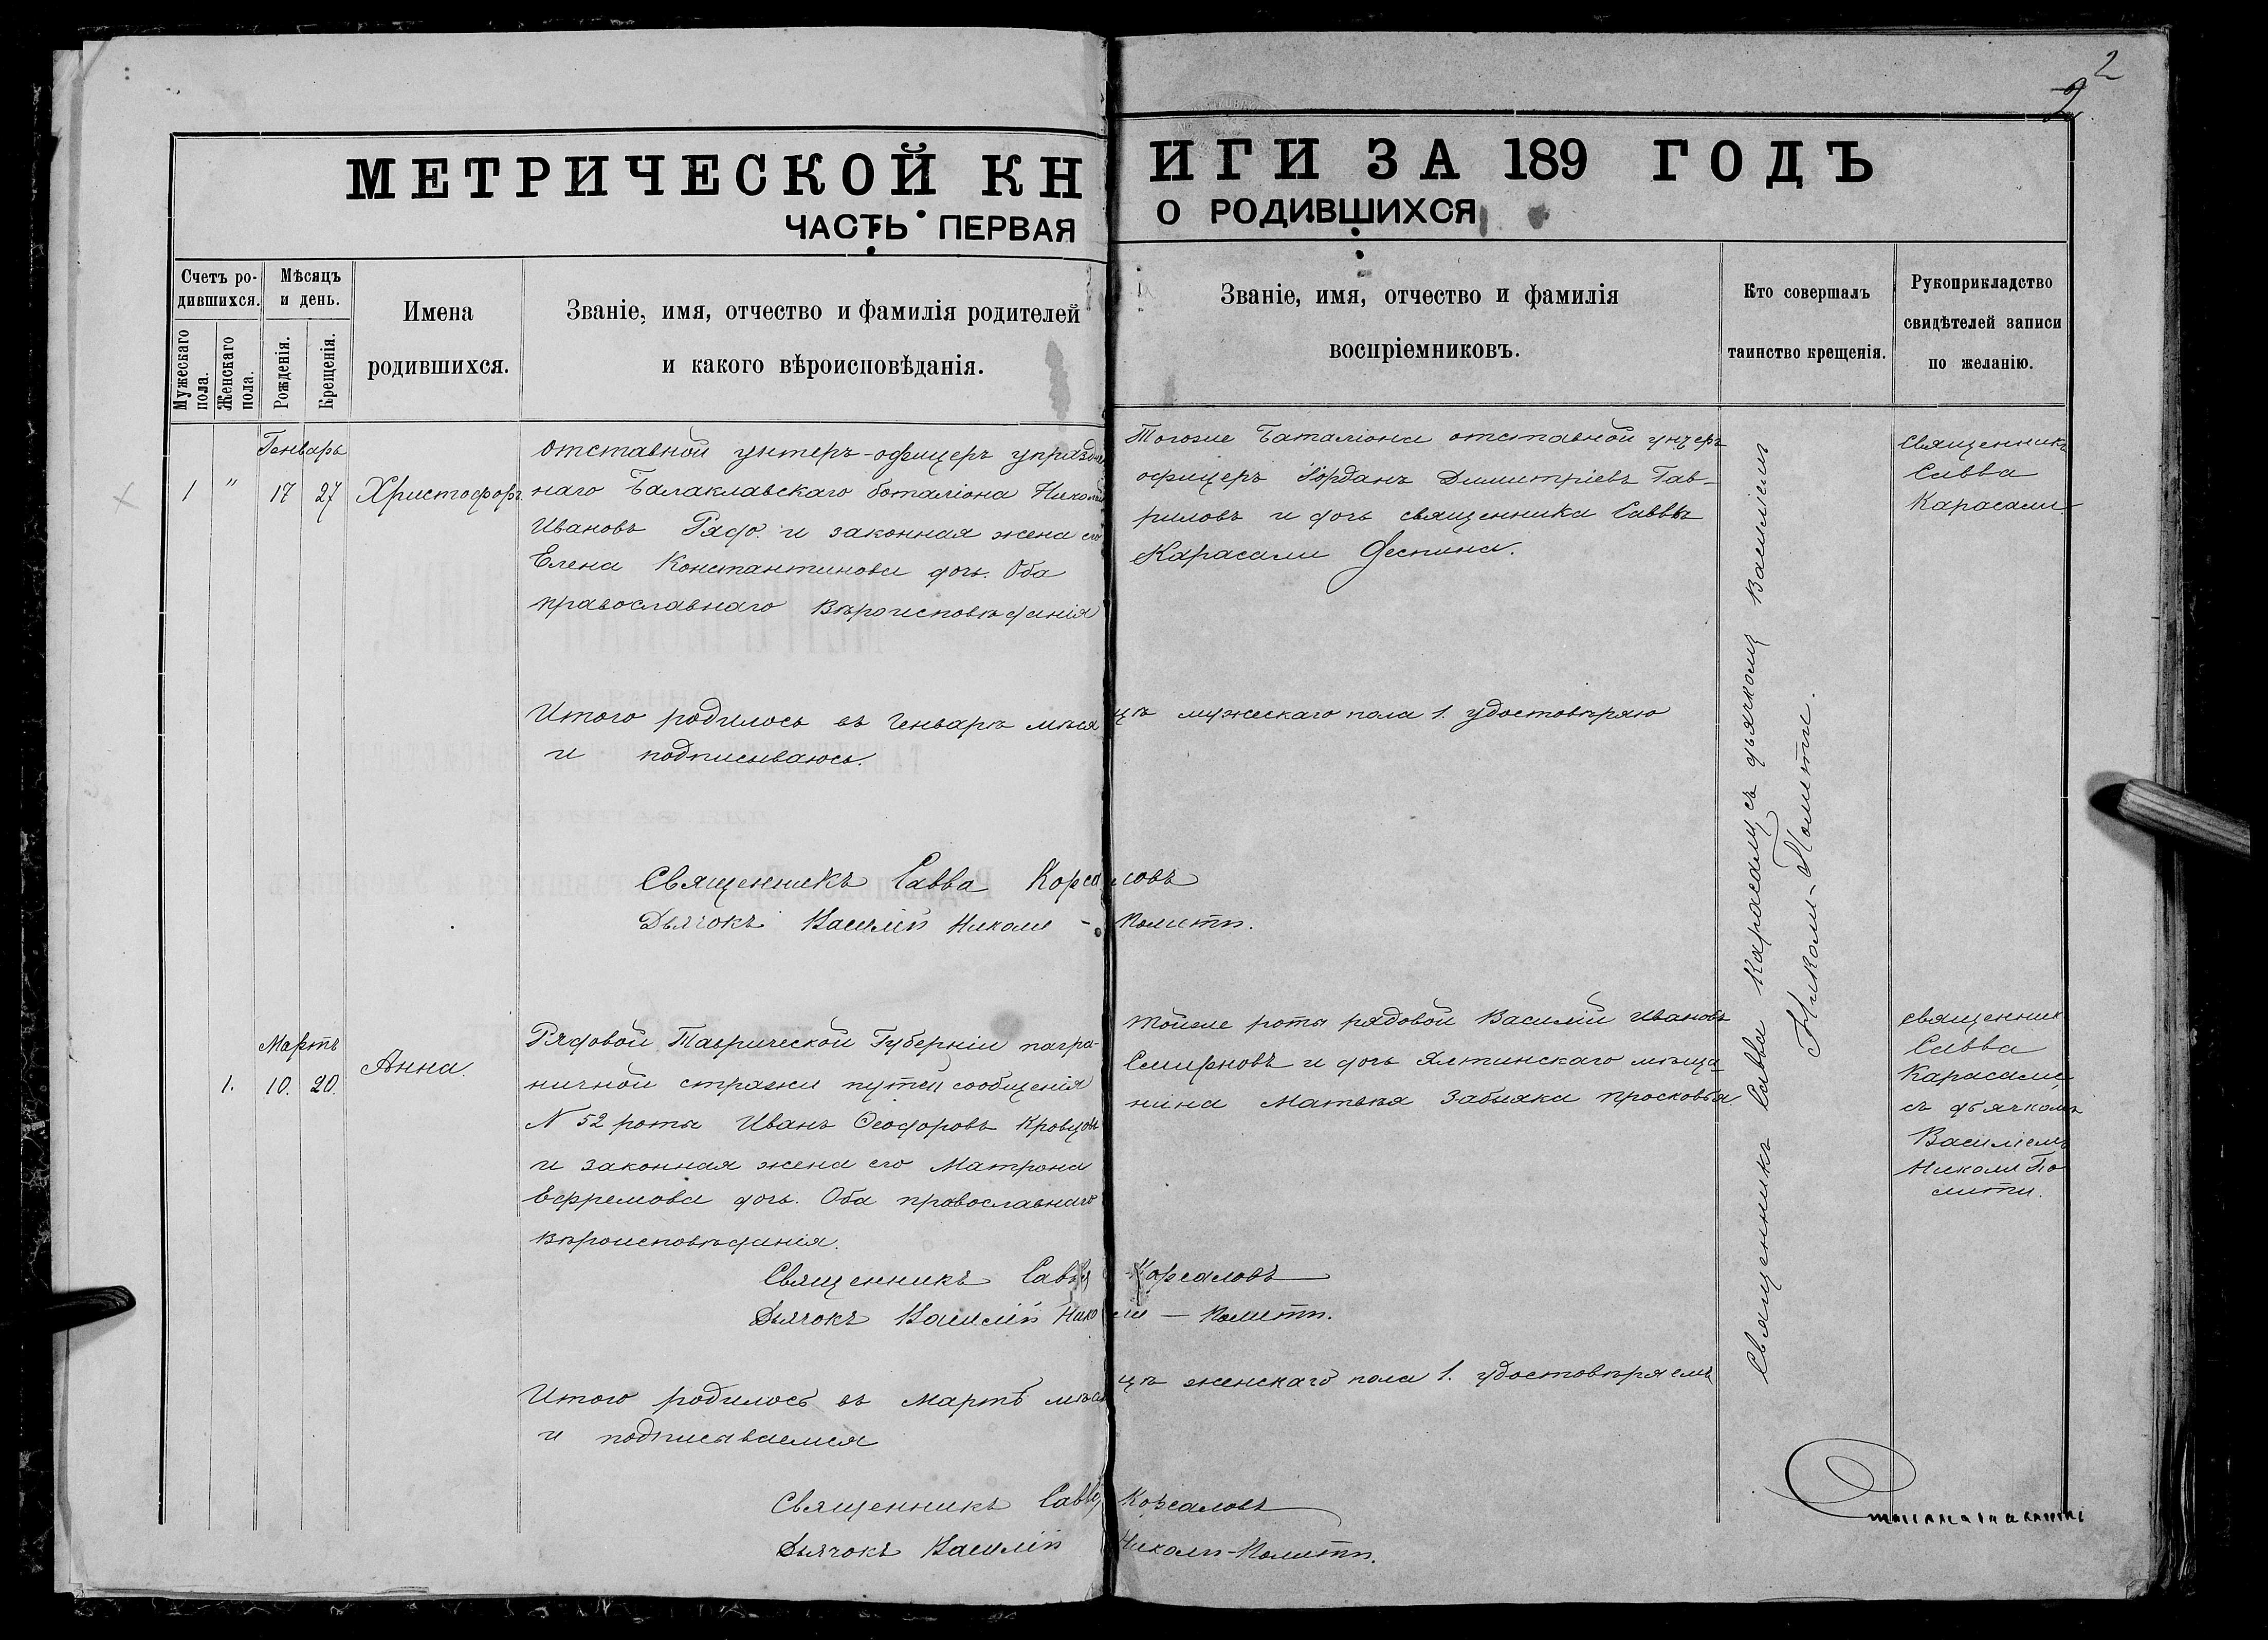 2
2
МЕТРИЧЕСКОЙ КНИГИ ЗА 189 ГОДЪ
ЧАСТЬ ПЕРВАЯ О РОДИВШИХСЯ
Счетъ родившихся.
Мужескаго пола.
Женскаго пола.
Мѣсяцъ и день.
Рожденія.
Крещенія.
Имена
родившихся.
Званіе, имя, отчество и фамилія родителей
и какого вѣроисповѣданія.
Званіе, имя, отчество и фамилія
воспріемниковъ.
Кто совершалъ
таинство крещенія.
Рукоприкладство
свидѣтелей записи
по желанію.
Генварь
1 " 17 27 Христофоръ
Отставной унтеръ-офицеръ упраздне
наго Балаклавскаго баталіона Николай
Ивановъ Рядо. и законная жена его
Елена Константинова дочь. Оба
православнаго вѣроисповѣданія
Тогоже Баталіона отставной унтеръ
офицеръ Іорданъ Димитріевъ Гав-
риловъ и дочь священника Саввы
Карасали Деспина.
Священникъ
Савва
Карасали
Священникъ Савва Карасали съ дьячкомъ Василіемъ
Николи-Политы.
Итого родилось въ Генварѣ мѣсяцѣ мужескаго пола 1. удостовѣряю
и подписываюсь.
Священникъ Савва Корсаловъ
Дьячокъ Василій Николи - Полити.
Мартъ
1. 10. 20. Анна.
Рядовой Таврической Губерніи погра-
ничной стражи путей сообщенія
N 52 роты Иванъ Ѳеодоровъ Кровцовъ
и законная жена его Матрона
Ефремова дочь. Оба православнаго
вѣроисповѣданія.
Тойже роты рядовой Василій Ивановъ
Смирновъ и дочь Ялтинскаго мѣща-
нина Матвѣя Забияки Просковья.
Священник
Савва
Карасали
съ дьячкомъ
Василіемъ
Николи По
лити.
Священникъ Савва Корсаловъ
Дьячокъ Василій Николи — Полити.
Итого родилось въ Мартѣ мѣсяцѣ женскаго пола 1. удостовѣряемъ
и подписываемся
Священникъ Савва Корсаловъ
Дьячокъ Василій Николи-Полити.